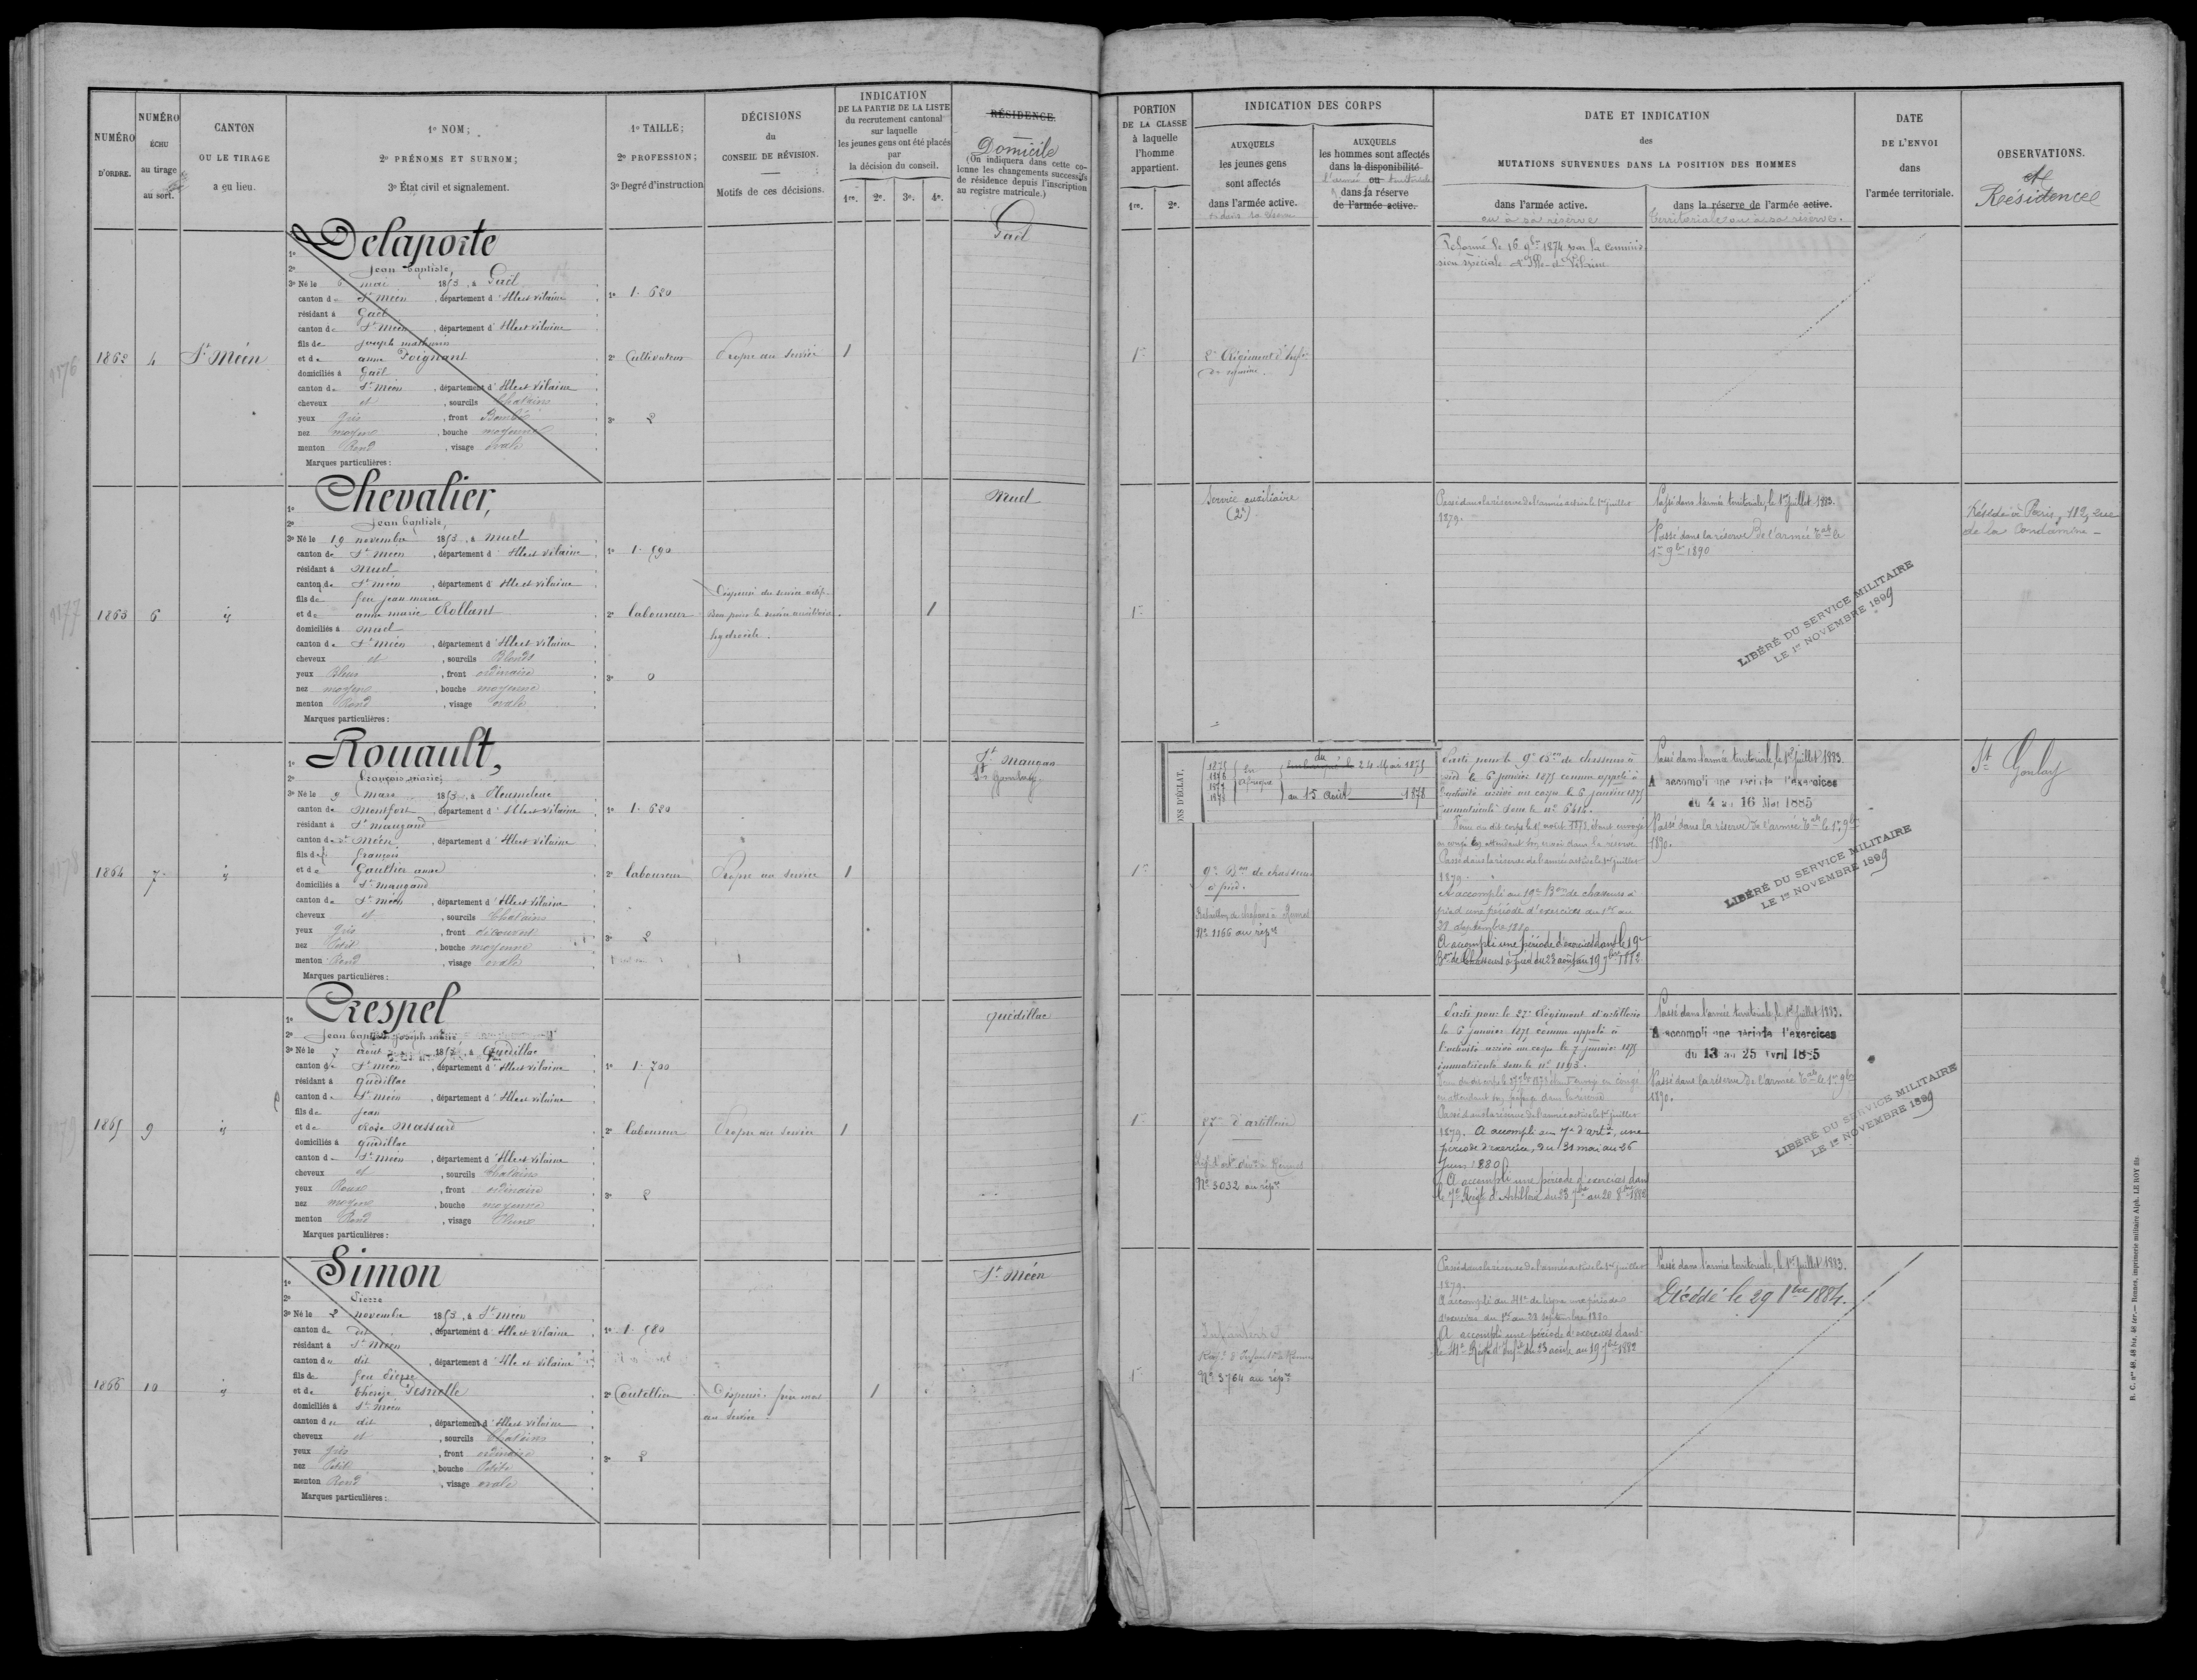 NUMÉRO
D'ORDRE.
NUMÉRO
ÉCHU
au tirage
au sort.
CANTON
OU LE TIRAGE
a eu lieu.
1º NOM;
2º PRÉNOMS ET SURNOM;
3º État civil et signalement.
1º TAILLE;
2º PROFESSION;
3º Degré d'instruction
DÉCISIONS
du
CONSEIL DE RÉVISION.
Motifs de ces décisions.
INDICATION
DE LA PARTIE DE LA LISTE
du recrutement cantonal
sur laquelle
les jeunes gens ont été placés
par
la décision du conseil.
1re. 2e. 3e. 4e.
RÉSIDENCE.
Domicile
(On indiquera dans cette co-
lonne les changements successifs
de résidence depuis l'inscription
au registre matricule.)
PORTION
DE LA CLASSE
à laquelle
l'homme
appartient.
1re. 2e.
INDICATION DES CORPS
AUXQUELS
les jeunes gens
sont affectés
dans l'armée active.
AUXQUELS
les hommes sont affectés
dans la disponibilité
ou
dans la réserve
de l'armée active.
DATE ET INDICATION
des
MUTATIONS SURVENUES DANS LA POSITION DES HOMMES
dans l'armée active.
ou à sa réserve
dans la réserve de l'armée active.
territoriale ou à sa réserve.
DATE
DE L'ENVOI
dans
l'armée territoriale.
OBSERVATIONS.
et
Résidence
1862
4
St Méen
1º Delaporte
2º Jean baptiste,
3º Né le 6 mai 1853, à Gaël
canton de St Méen, département d'Ille et Vilaine
résidant à Gaël
canton de St Méen, département d'Ille et Vilaine
fils de joseph mathurin
et de anne Poignant
domiciliés à Gaël
canton de St Méen, département d'Ille et Vilaine
cheveux et, sourcils Chatains
yeux gris, front Bombé
nez moyen, bouche moyenne
menton Rond, visage ovale
Marques particulières:
1º 1. 620
2º Cultivateur
3º 2
Propre au service
1
Gaël
1re
2e Régiment d'Infie
de marine.
Réformé le 16 9bre 1874 par la commis-
sion spéciale d'Ille-et-Vilaine
1863
6
id
1º Chevalier,
2º Jean baptiste,
3º Né le 19 novembre 1853, à Muel
canton de St Méen, département d'Ille et Vilaine
résidant à Muel
canton de St Méen, département d'Ille et Vilaine
fils de feu jean marie
et de anne marie Rolland
domiciliés à Muel
canton de St Méen, département d'Ille et Vilaine
cheveux et, sourcils Blonds
yeux Bleus, front ordinaire
nez moyen, bouche moyenne
menton Rond, visage ovale
Marques particulières:
1º 1. 590
2º laboureur
3º 0
Dispensé du service actif
bon pour le service auxiliaire
hydrocèle.
1
Muel
1re
Service auxiliaire
(2e)
Passé dans la réserve de l'armée active le 1er juillet
1879.
Passé dans l'armée territoriale, le 1er juillet 1883.
Passé dans la réserve de l'armée tale le
1er 9bre 1890
LIBÉRÉ DU SERVICE MILITAIRE
LE 1er NOVEMBRE 1899
Réside à Paris, 112, rue
de la Condamine
1864
7
id
1º Rouault,
2º François marie
3º Né le 9 mars 1853, à Pleumeleuc
canton de Montfort, département d'Ille et Vilaine
résidant à St Maugand
canton de St Méen, département d'Ille et Vilaine
fils de françois
et de Gaultier anne
domiciliés à St Maugand
canton de St Méen, département d'Ille et Vilaine
cheveux et, sourcils Chatains
yeux gris, front découvert
nez Petit, bouche moyenne
menton Rond, visage ovale
Marques particulières:
1º 1. 620
2º laboureur
3º 2
Propre au service
1
St Maugan
1re
ONS D'ÉCLAT.
1875
1876
1877
1878
en
Afrique
du
24 Mai 1875
au 15 Août 1878
9e Bon de chasseurs
à pied.
Bataillon de chasseurs à Rennes
No 1166 au répre
Parti pour le 9e Bon de chasseurs à
pied le 6 janvier 1875 comme appelé à
l'activité arrivé au corps le 6 janvier 1875
immatriculé sous le no 6414.
en congé en attendant son passage dans la réserve
Passé dans la réserve de l'armée active le 1er juillet
1879.
A accompli au 19e Bon de chasseurs à
pied une période d'exercices du 1er au
28 septembre 1880
A accompli une période d'exercices dans le 19e
Bon de Chasseurs à pied du 23 août au 19 7bre 1882
Passé dans l'armée territoriale, le 1er juillet 1883.
A accompli une période d'exercices
du 4 au 16 Mai 1885
Passé dans la réserve de l'armée tale le 1er 9bre
1890.
LIBÉRÉ DU SERVICE MILITAIRE
LE 1er NOVEMBRE 1899
St Gonlay
1865
9
id
1º Crespel
2º Jean baptiste joseph marie
3º Né le 7 août 1853, à Quédillac
canton de St Méen, département d'Ille et Vilaine
résidant à Quédillac
canton de St Méen, département d'Ille et Vilaine
fils de Jean
et de Rose Massard
domiciliés à Quédillac
canton de St Méen, département d'Ille et Vilaine
cheveux et, sourcils Chatains
yeux Roux, front ordinaire
nez moyen, bouche moyenne
menton Rond, visage
Marques particulières:
1º 1. 700
2º laboureur
3º 2
Propre au service
1
Quédillac
1re
d'artillerie
No 3032 au répre
Parti pour le 27e Régiment d'artillerie
le 6 janvier 1875 comme appelé à
l'activité arrivé au corps le 7 janvier 1875
immatriculé sous le no 1193.
en attendant son passage dans la réserve
Passé dans la réserve de l'armée active le 1er juillet
1879. A accompli au 7e d'artie, une
période d'exercices, du 31 mai au 26
Juin 1880
A accompli une période d'exercices dans
le 7e Régt d'Artillerie du 23 7bre au 20 8bre 1882
Passé dans l'armée territoriale, le 1er juillet 1883.
A accompli une période d'exercices
du 13 au 25 Avril 1885
Passé dans la réserve de l'armée tale le 1er 9bre
1890.
LIBÉRÉ DU SERVICE MILITAIRE
LE 1er NOVEMBRE 1899
1866
10
id
1º Simon
2º Pierre
3º Né le 2 novembre 1853, à St Méen
canton de dit, département d'Ille et Vilaine
résidant à St Méen
canton du dit, département d'Ille et Vilaine
fils de feu Pierre
et de thérèse Desnelle
domiciliés à St Méen
canton du dit, département d'Ille et Vilaine
cheveux et, sourcils Chatains
yeux gris, front ordinaire
nez Petit, bouche Petite
menton Rond, visage ovale
Marques particulières:
1º 1. 580
2º Coutellier
3º 2
Dispensé. frère mort
au service.
1
St Méen
1re
Infanterie
Régt d'Infanterie à Rennes
No 3764 au répre
Passé dans la réserve de l'armée active le 1er juillet
1879.
A accompli au 41e de ligne une période
d'exercices du 1er au 28 septembre 1880
A accompli une période d'exercices dans
le 41e Régt d'Infie du 23 août au 19 7bre 1882
Passé dans l'armée territoriale, le 1er juillet 1883.
Décédé le 29 1884.
R. C. Nos 40, 48 bis, 46 ter.— Rennes, imprimerie militaire Alph. LE ROY fils